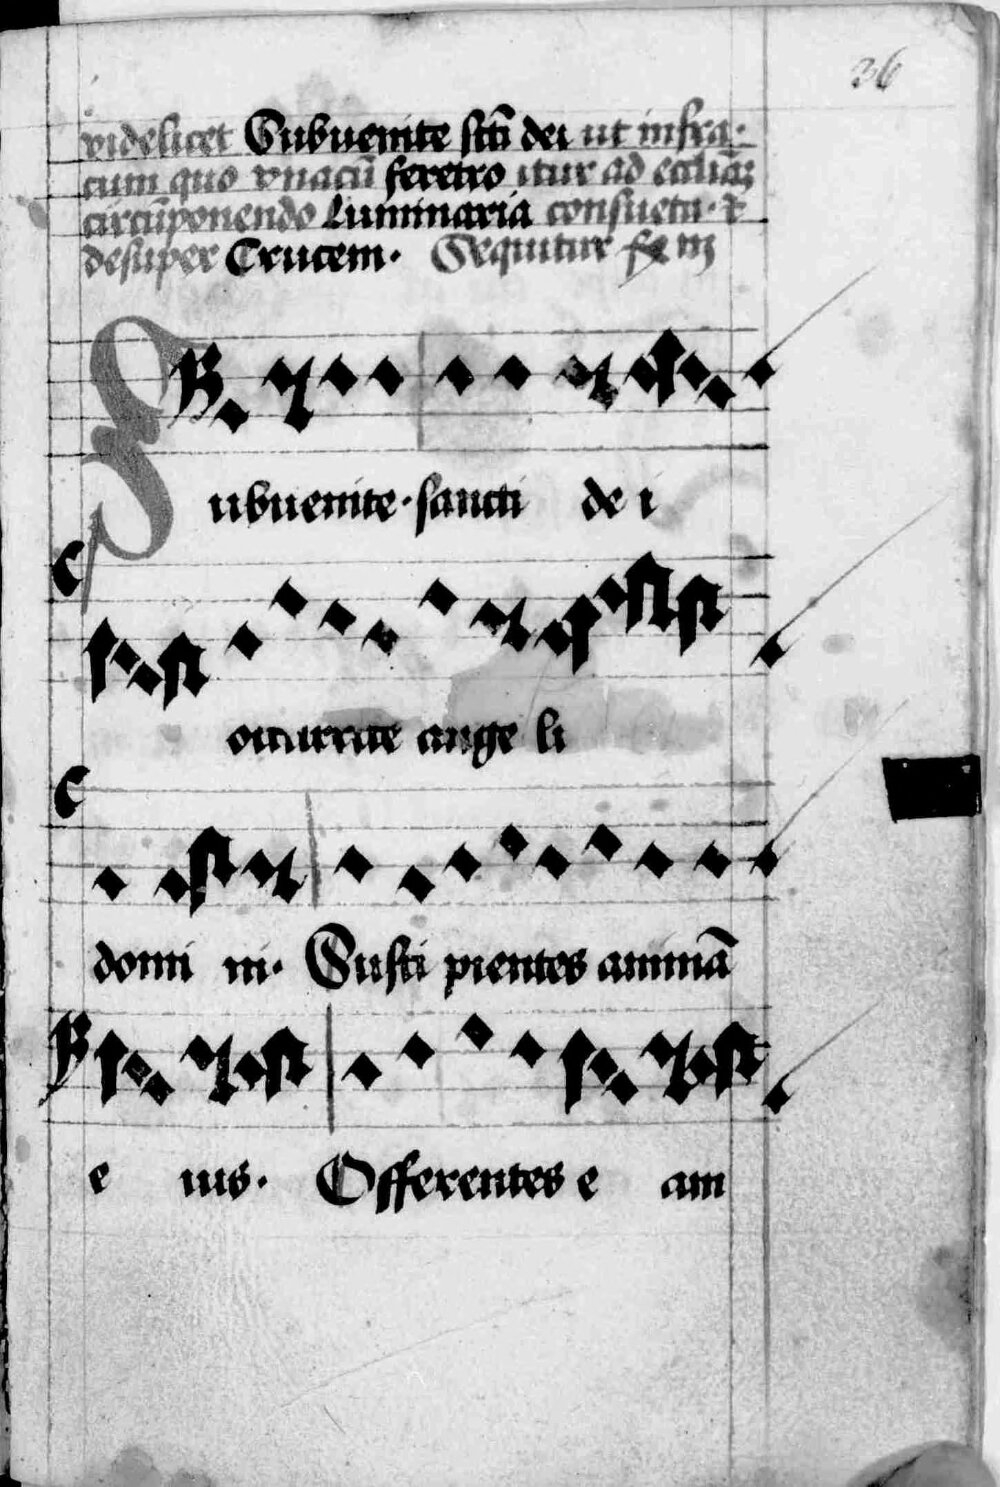 36
videlicet Subuenite scti dei ut infra.
cum quo vnacū feretro itur ad eccliā
circūponendo luminaria consueta. et
desuper Crucem. Sequitur
Subuenite. sancti de i
occurrite ange li
domi ni. Susci pientes animā
e ius. Offerentes e am